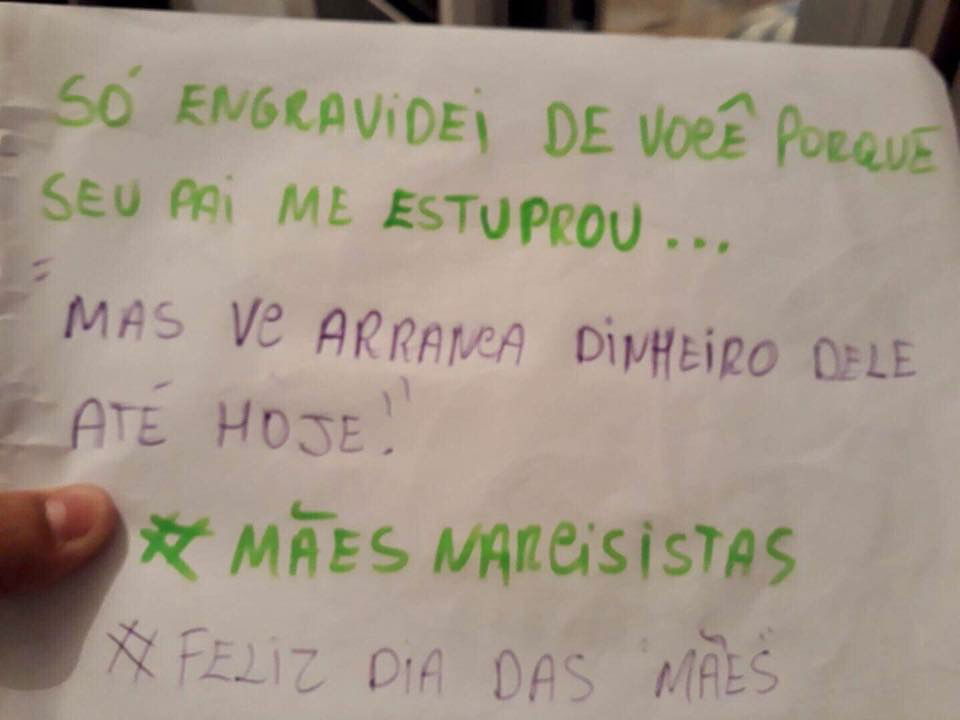 SÓ ENGRAVIDEI DE VOCÊ PORQUE
SEU PAI ME ESTUPROU...
"MAS VC ARRANCA DINHEIRO DELE
ATÉ HOJE!"
# MÃES NARCISISTAS
# FELIZ DIA DAS MÃES